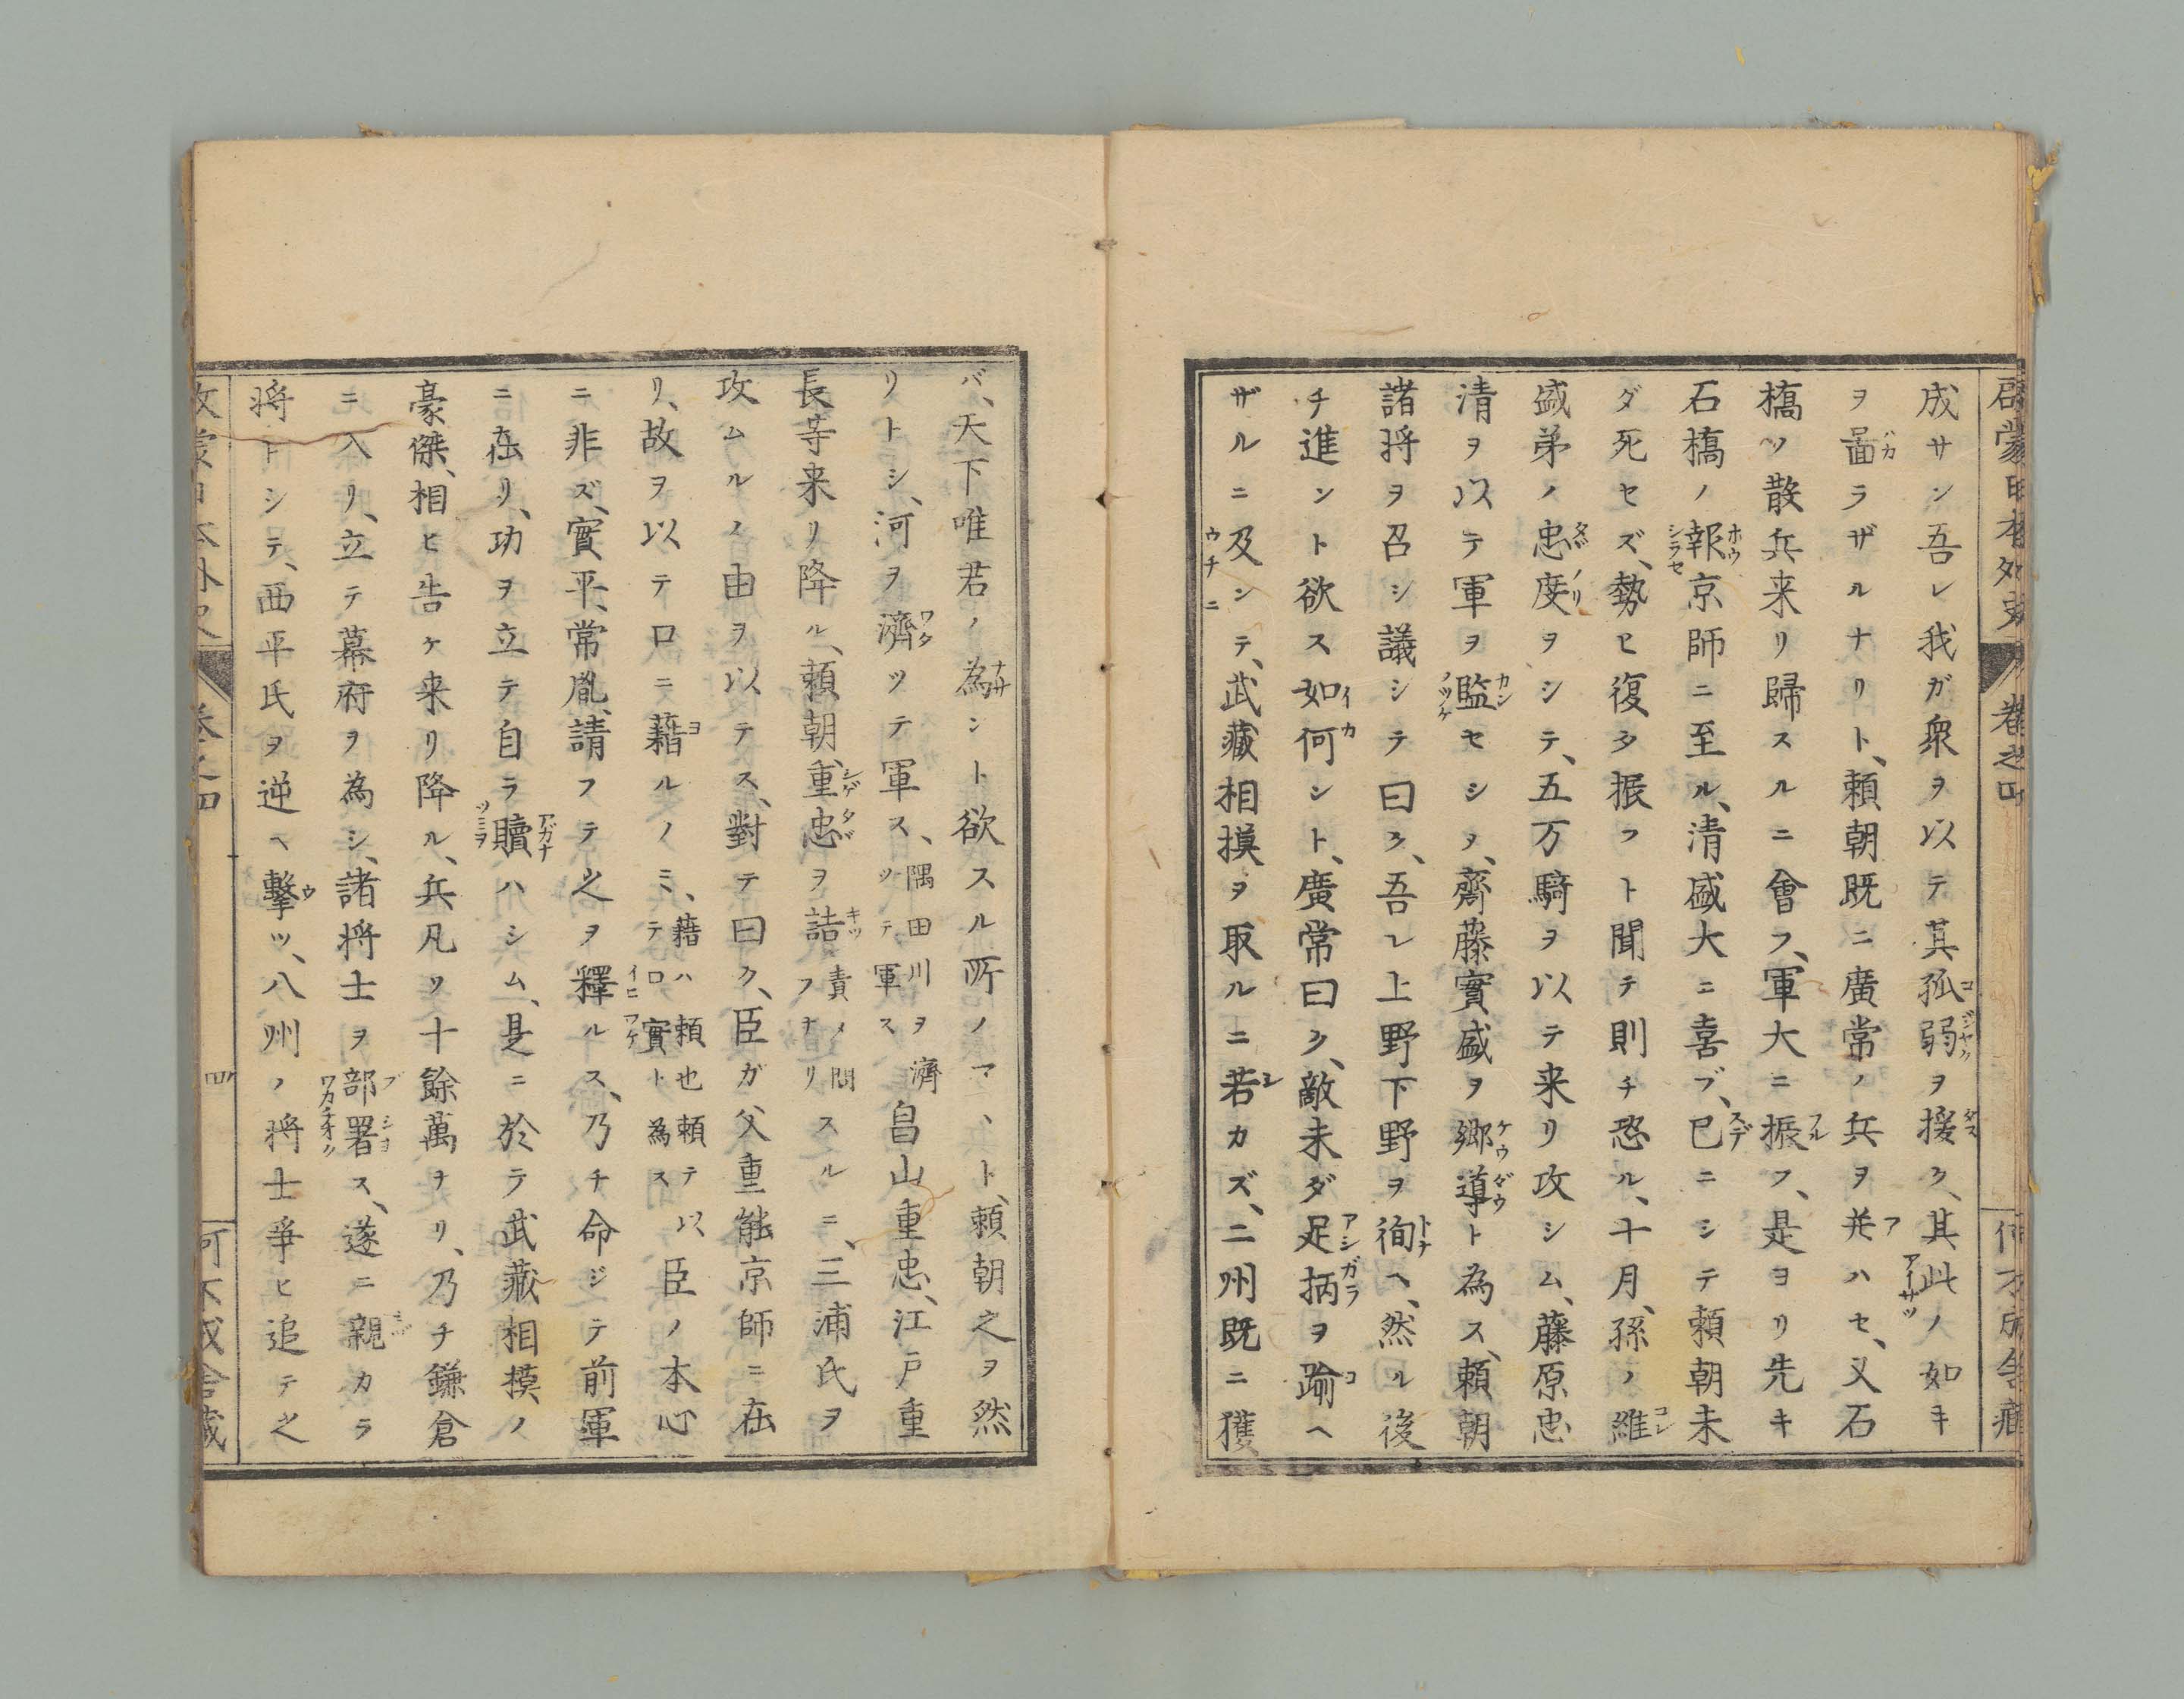 啓蒙日本外史 巻之四 何不成舎蔵
成サン吾レ我ガ衆ヲ以テ其孤弱ヲ援ク、其此ノ如キ
ヲ啚ラザルナリト、頼朝既ニ廣常ノ兵ヲ并ハセ、又石
橋ツ散兵来リ歸スルニ會フ、軍大ニ振フ、是ヨリ先キ
石橋ノ報京師ニ至ル、清盛大ニ喜ブ、已ニシテ頼朝未
ダ死セズ、勢ヒ復タ振フト聞テ則チ恐ル、十月、孫ノ維
盛弟ノ忠度ヲシテ、五万騎ヲ以テ来リ攻シム、藤原忠
清ヲ以テ軍ヲ監セシメ、齋藤實盛ヲ郷導ト為ス、頼朝
諸将ヲ召シ議シテ曰ク、吾レ上野下野ヲ徇ヘ、然ル後
チ進ント欲ス如何シト、廣常曰ク、敵未ダ足柄ヲ踰ヘ
ザルニ及ンテ、武藏相摸ヲ取ルニ若カズ、二州既ニ獲
バ、天下唯君ノ為ント欲スル所ノマヽト、頼朝之ヲ然
リトシ、河ヲ濟ツテ軍ス、隅田川ヲ濟ツテ軍ス畠山重忠、江戸重
長等来リ降ル、頼朝、重忠ヲ詰責メ問フナリスルニ、三浦氏ヲ
攻ムルノ由ヲ以テス、對テ曰ク、臣ガ父重能京師ニ在
リ、故ヲ以テ口ニ藉ルノミ、藉ハ頼也頼テ以テ口實ト為ス臣ノ本心
ニ非ズ、實平、常胤、請フテ之ヲ釋ルス、乃チ命ジテ前軍
ニ在リ、功ヲ立テ自ラ贖ハシム、是ニ於テ武藏相摸ノ
豪傑、相ヒ告ケ来リ降ル、兵凡ソ十餘萬ナリ、乃チ鎌倉
ニ入リ、立テ幕府ヲ為シ、諸将士ヲ部署ス、遂ニ親カラ
将トシテ、西平氏ヲ逆ヘ擊ツ、八州ノ将士爭ヒ追テ之
啓蒙日本外史 巻之四 四 何不成舎蔵